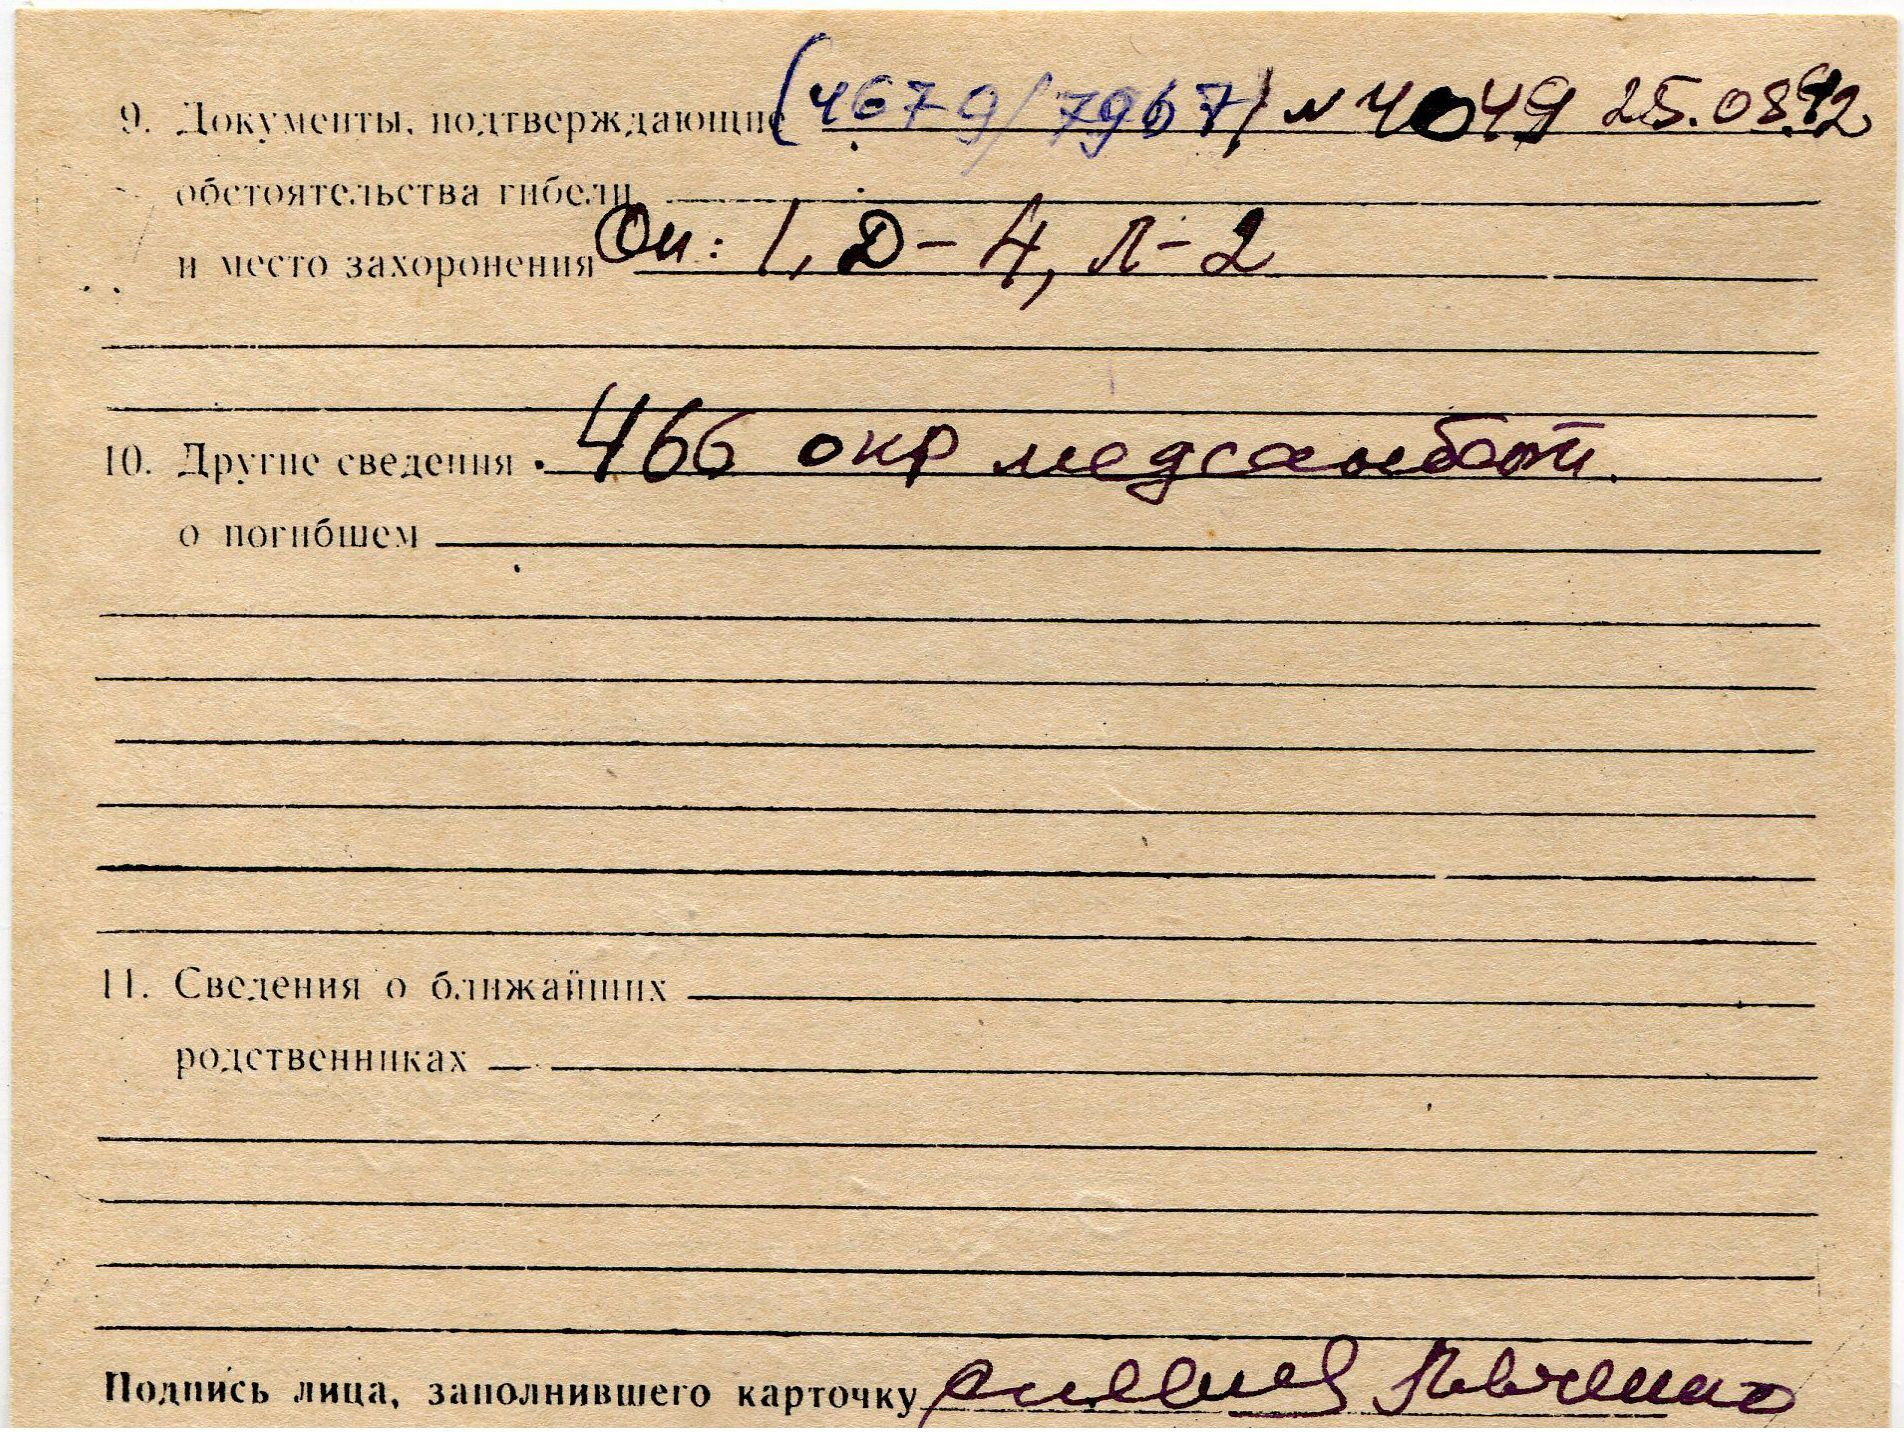 9. Документы, подтверждающие (4679/7967) N 4049 25.08.92
обстоятельства гибели
и место захоронения Оп: 1, Д-4, Л-2
10. Другие сведения 466 окр медсанбат.
о погибшем
11. Сведения о ближайших
родственниках
Подпись лица, заполнившего карточку